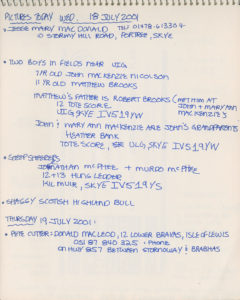 PICTURES TODAY WED. 18 JULY 2001
• JESSIE MARY MAC DONALD TEL: 01478-613304
10 STORMY HILL ROAD, PORTREE, SKYE
• TWO BOYS IN FIELDS NEAR UIG
7 YR OLD JOHN MACKENZIE NICOLSON
11 YR OLD MATTHEW BROOKS
MATTHEW'S FATHER IS ROBERT BROOKS (MET HIM AT
12 TOTE SCORE JOHN + MARY ANN
UIG SKYE IV51 9YW MACKENZIE'S
JOHN & MARY ANN MACKENZIE ARE JOHN'S GRANDPARENTS
HEATHER BANK
TOTE SCORE, UIG, SKYE IV51 9YW
• SHEEP SHEARERS
JONATHAN MCPHEE + MURDO MCPHEE
12+13 HUNGLEDDER
KILMUIR, SKYE IV51 9YS
• SHAGGY SCOTISH HIGHLAND BULL
THURSDAY 19 JULY 2001:
• PETE CUTTER: DONALD MACLEOD, 12 LOWER BRAVAS, ISLE OF LEWIS
0187 840 325 · PHONE
ON HWY 857 BETWEEN STORNOWAY & BRABHAS